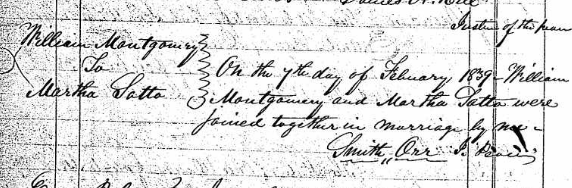 Justice of the peace
William Montgomery
To
Martha Totto
On the 7th day of February 1839 - William
Montgomery and Martha Totto were
joined together in marriage by me -
Smith Orr J. Peace